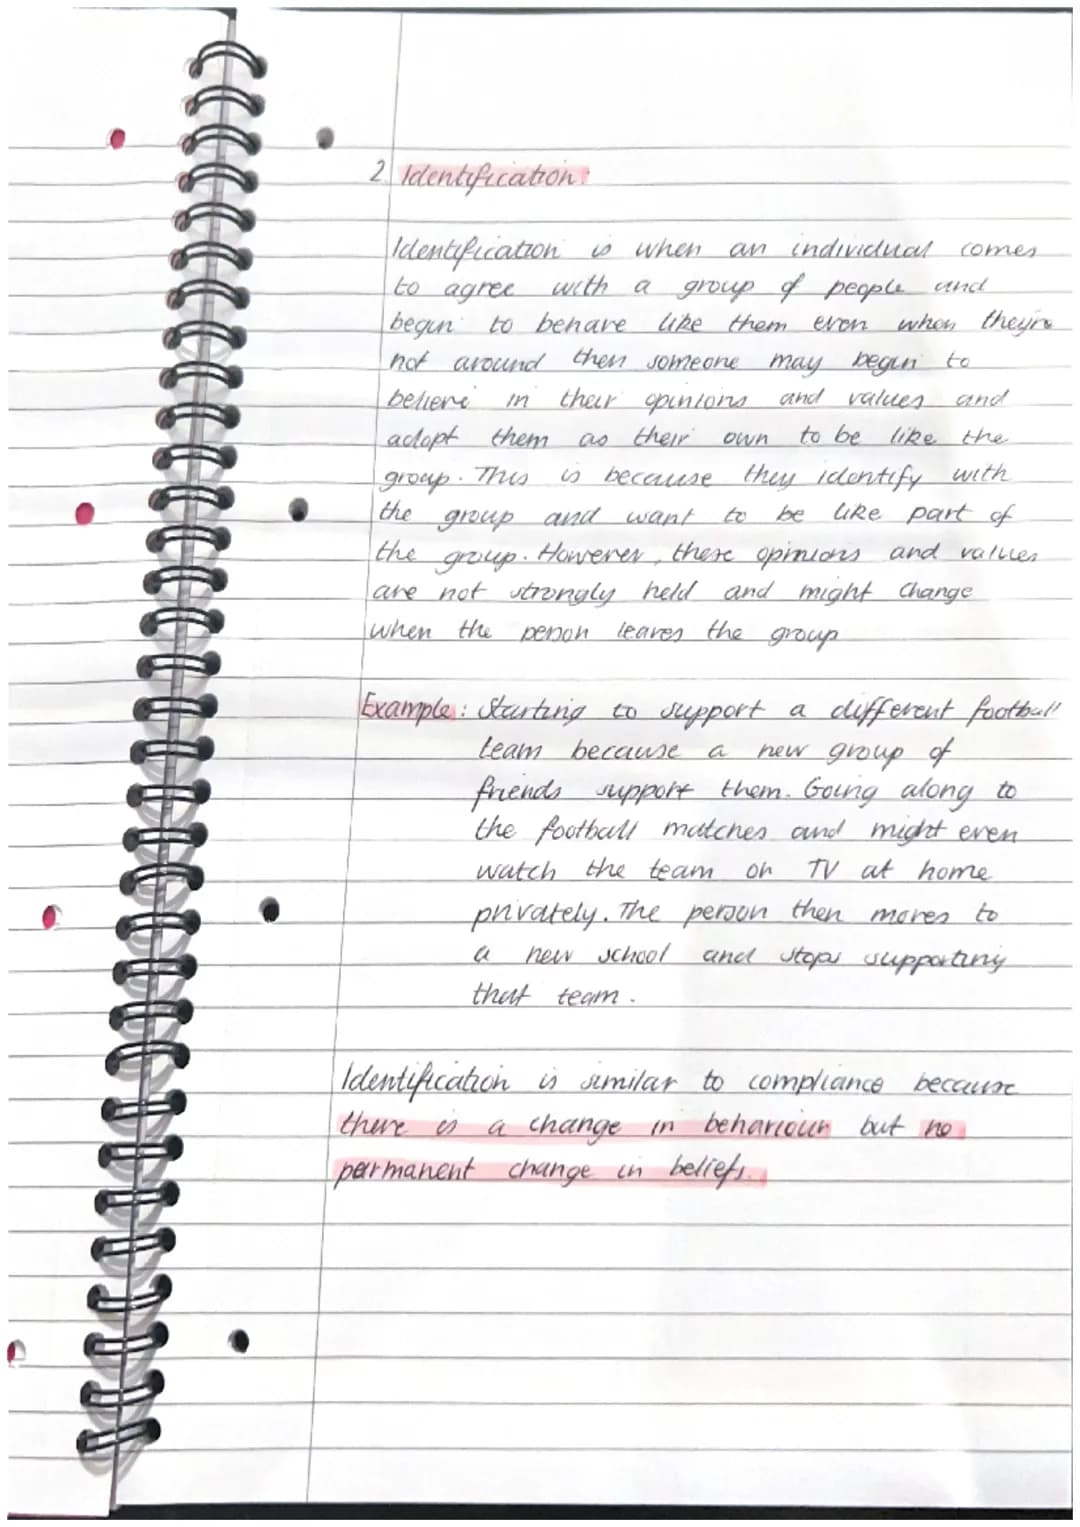 2. Identification:
Identification is when an individual comes
to agree with a group of people and
begin to behave like them even when theyre
not around then someone may begin to
believe in their opinions and values and
adopt them as their own to be like the
group. This is because they identify with
the group and want to be like part of
the group. However, these opinions and values
are not strongly held and might change
when the person leaves the group
Example: Starting to support a different football
team because a new group of
friends support them. Going along to
the football matches and might even
watch the team on TV at home
privately. The person then moves to
a new school and stops supporting
that team.
Identification is similar to compliance because
there is a change in behaviour but no
permanent change in beliefs.